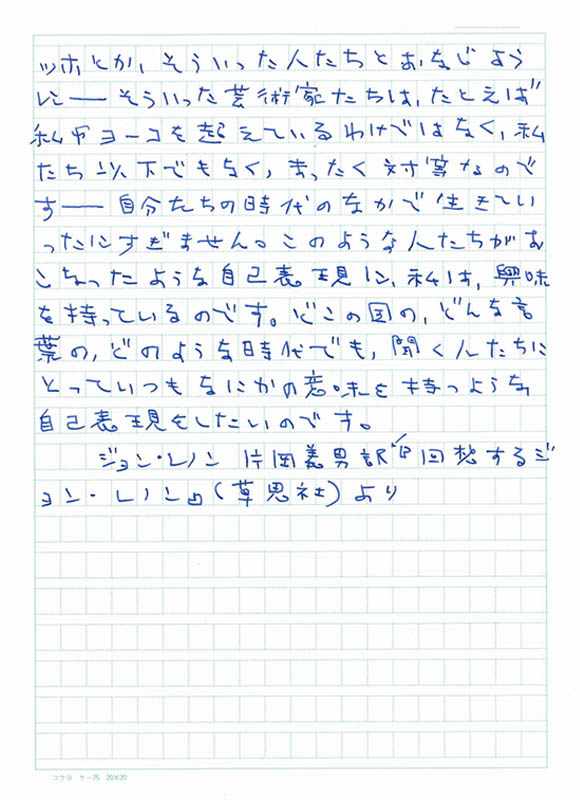 ッホとか、そういった人たちとおなじよう
に――そういった芸術家たちは、たとえば
私やヨーコを超えているわけではなく、私
たち以下でもなく、まったく対等なので
す――自分たちの時代のなかで生きてい
ったにすぎません。このような人たちがお
こなったような自己表現に、私は、興味
を持っているのです。どこの国の、どんな言
葉の、どのような時代でも、聞く人たちに
とっていつもなにかの意味を持つような
自己表現をしたいのです。
ジョン・レノン 片岡義男訳『回想するジ
ョン・レノン』(草思社)より
コクヨ ケ-75 20×20